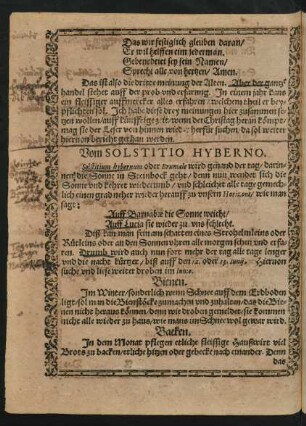 Das wir festiglich gleuben daran/
Er wil helffen eim jederman.
Gebenedeiet sey sein Namen/
Sprecht alle von hertzen/ Amen.
Das ist also die dritte meinung der Alten. Aber der gantz
handel stehet auff der prob und erfarung. In einem jahr kans
ein fleissiger auffmercker alles erfahren/ welchem theil er bey
pflichten sol. Ich habe diese drey meinungen hier zusammen se-
tzen wollen/auff künfftige zeit/ wenn der Christag heran kömpt/
mag sie der Leser von hinnen wider herfür suchen/ da sol weiter
hiervon bericht gethan werden.
Vom SOLSTITIO HYBERNO.
Solstitium hybernum oder brumale wird genand der tag/ darin-
nen die Sonne in Steinbock geht/ denn nun wendet sich die
Sonne und kehret widerumb/ und schleichet alle tage gemech-
lich einen grad neher wider herauff zu unsern Horizont/ wie man
sagt:
Auff Barnabæ die Sonne weicht/
Auff Lucia sie wieder zu uns schleicht.
Diß kan man fein am schatten eines Strohelmleins oder
Rütleins oder an den Sonnenuhren alle morgen sehen und erfa-
ren. Drumb wird auch nun fort mehr der tag alle tage lenger
und die nacht kürtzer, biß auff den
suche und liese weiter droben im Iunio.
Bienen.
Im Winter/sonderlich wenn Schnee auff dem Erdboden
ligt/sol man die Bienstöcke zumachen und zuhalten/ das die Bie-
nen nicht heraus können/ denn wie droben gemeldet/ sie kommen
nicht alle wieder zu haus/ wie mans im Schnee wol gewar wird.
Backen.
In dem Monat pflegen etliche fleissige Hauswirte viel
Brots zu backen/ etliche hitzen oder gebecke nach einander. Denn
das